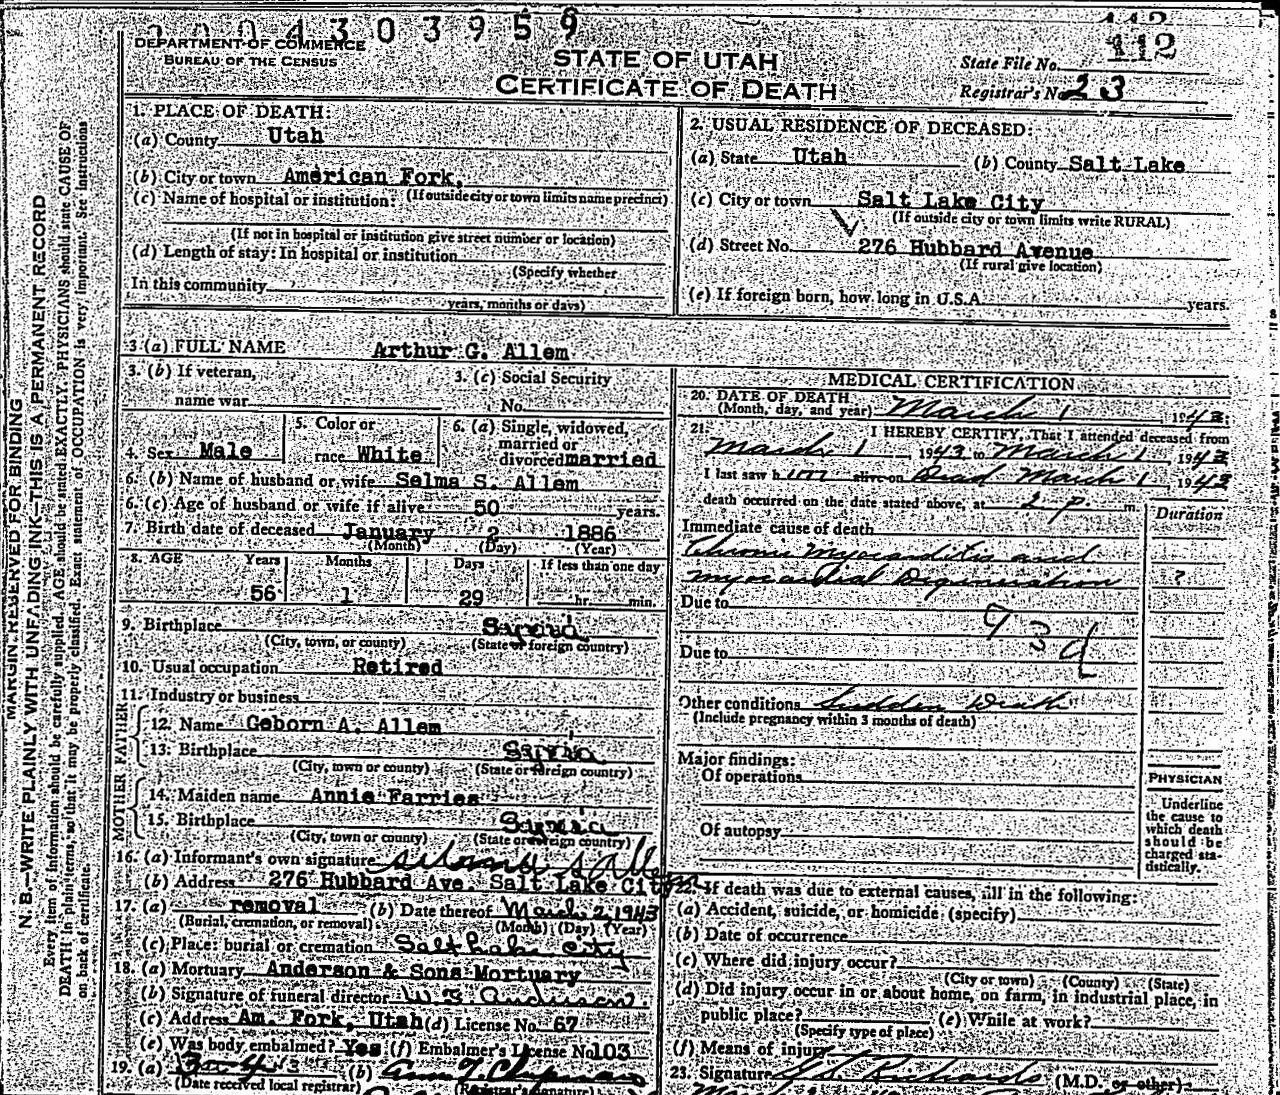 2 0 0 4 3 0 3 9 5 9
112
112
DEPARTMENT OF COMMERCE
BUREAU OF THE CENSUS
STATE OF UTAH
CERTIFICATE OF DEATH
State File No.
Registrar's No. 23
MARGIN RESERVED FOR BINDING
N. B.—WRITE PLAINLY WITH UNFADING INK—THIS IS A PERMANENT RECORD
Every item of information should be carefully supplied. AGE should be stated EXACTLY. PHYSICIANS should state CAUSE OF
DEATH in plain terms, so that it may be properly classified. Exact statement of OCCUPATION is very important. See instructions
on back of certificate.
1. PLACE OF DEATH:
(a) County Utah
(b) City or town American Fork,
(If outside city or town limits name precinct)
(c) Name of hospital or institution:
(If not in hospital or institution give street number or location)
(d) Length of stay: In hospital or institution
(Specify whether
In this community
years, months or days)
2. USUAL RESIDENCE OF DECEASED:
(a) State Utah (b) County Salt Lake
(c) City or town Salt Lake City
(If outside city or town limits write RURAL)
(d) Street No. 276 Hubbard Avenue
(If rural give location)
(e) If foreign born, how long in U.S.A. years.
3 (a) FULL NAME Arthur G. Allem
3. (b) If veteran,
name war
3. (c) Social Security
No.
4. Sex Male
5. Color or
race White
6. (a) Single, widowed,
married or
divorced married
6. (b) Name of husband or wife Selma S. Allem
6. (c) Age of husband or wife if alive 50 years.
7. Birth date of deceased January 2 1886
(Month) (Day) (Year)
8. AGE Years Months Days If less than one day
56 1 29 hr. min.
9. Birthplace Syria
(City, town, or county) (State or foreign country)
10. Usual occupation Retired
11. Industry or business
FATHER
12. Name Geborn A. Allem
13. Birthplace Syria
(City, town, or county) (State or foreign country)
MOTHER
14. Maiden name Annie Farries
15. Birthplace Syria
(City, town or county) (State or foreign country)
16. (a) Informant's own signature Selma S Allem
(b) Address 276 Hubbard Ave. Salt Lake City
17. (a) removal (b) Date thereof March 2, 1943
(Burial, cremation, or removal) (Month) (Day) (Year)
(c) Place: burial or cremation Salt Lake City
18. (a) Mortuary Anderson & Sons Mortuary
(b) Signature of funeral director W. B. Anderson.
(c) Address Am. Fork, Utah (d) License No. 67
(e) Was body embalmed? Yes (f) Embalmer's License No 103
19. (a) 3-4-43 (b)
(Date received local registrar) (Registrar's signature)
MEDICAL CERTIFICATION
20. DATE OF DEATH
(Month, day, and year) March 1 1943.
21. I HEREBY CERTIFY, That I attended deceased from
March 1 1943 to March 1 1943
I last saw him alive on Dead March 1 1943
death occurred on the date stated above, at 2 p. m.
Duration
Immediate cause of death
Chronic Myocarditis and
myocardial Degeneration ?
Due to
93d
Due to
Other conditions Sudden Death
(Include pregnancy within 3 months of death)
Major findings:
Of operations
Of autopsy
PHYSICIAN
Underline
the cause to
which death
should be
charged sta-
tistically.
22. If death was due to external causes, fill in the following:
(a) Accident, suicide, or homicide (specify)
(b) Date of occurrence
(c) Where did injury occur?
(City or town) (County) (State)
(d) Did injury occur in or about home, on farm, in industrial place, in
public place? (e) While at work?
(Specify type of place)
(f) Means of injury
23. Signature Richards (M.D. or other)